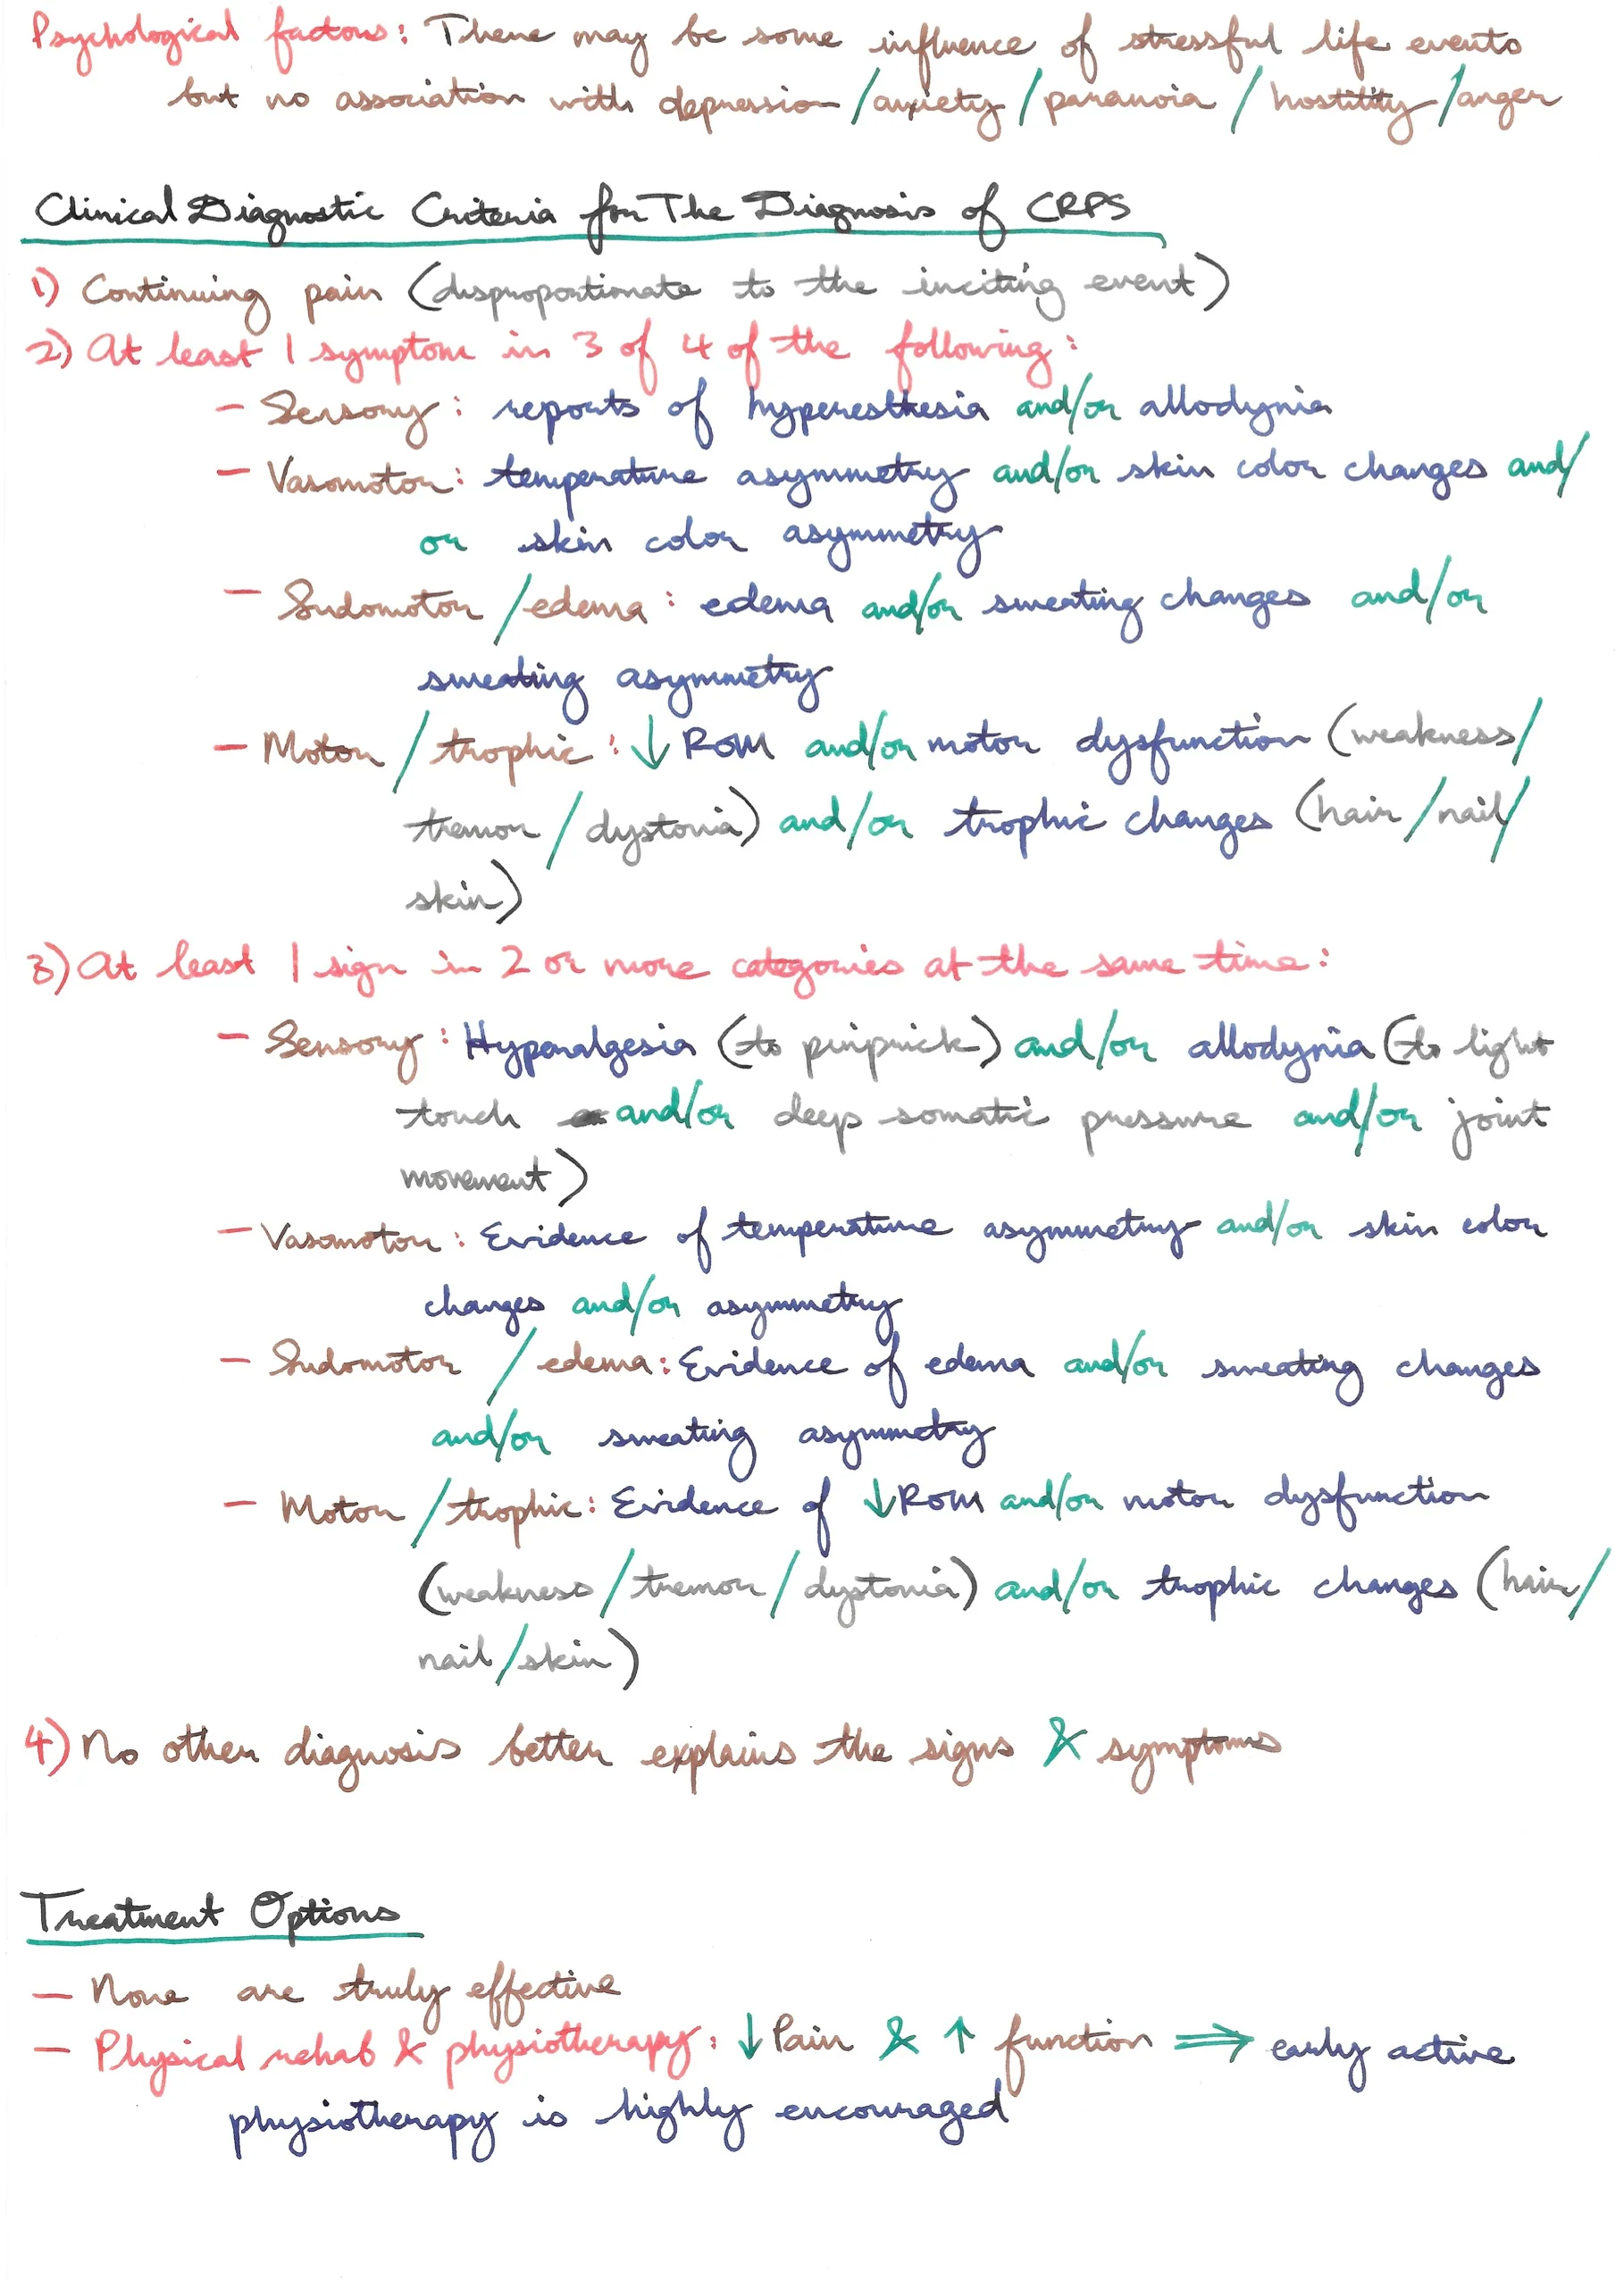 Psychological factors: There may be some influence of stressful life events
but no association with depression/anxiety/paranoia/hostility/anger
Clinical Diagnostic Criteria for The Diagnosis of CRPS
1) Continuing pain (disproportionate to the inciting event)
2) At least 1 symptom in 3 of 4 of the following:
- Sensory: reports of hyperesthesia and/or allodynia
- Vasomotor: temperature asymmetry and/or skin color changes and/
or skin color asymmetry
- Sudomotor/edema: edema and/or sweating changes and/or
sweating asymmetry
- Motor/trophic: ↓ ROM and/or motor dysfunction (weakness/
tremor/dystonia) and/or trophic changes (hair/nail/
skin)
3) At least 1 sign in 2 or more categories at the same time:
- Sensory: Hyperalgesia (to pinprick) and/or allodynia (to light
touch and/or deep somatic pressure and/or joint
movement)
- Vasomotor: Evidence of temperature asymmetry and/or skin color
changes and/or asymmetry
- Sudomotor/edema: Evidence of edema and/or sweating changes
and/or sweating asymmetry
- Motor/trophic: Evidence of ↓ROM and/or motor dysfunction
(weakness/tremor/dystonia) and/or trophic changes (hair/
nail/skin)
4) No other diagnosis better explains the signs & symptoms
Treatment Options
- None are truly effective
- Physical rehab & physiotherapy: ↓Pain & ↑ function ⇒ early active
physiotherapy is highly encouraged